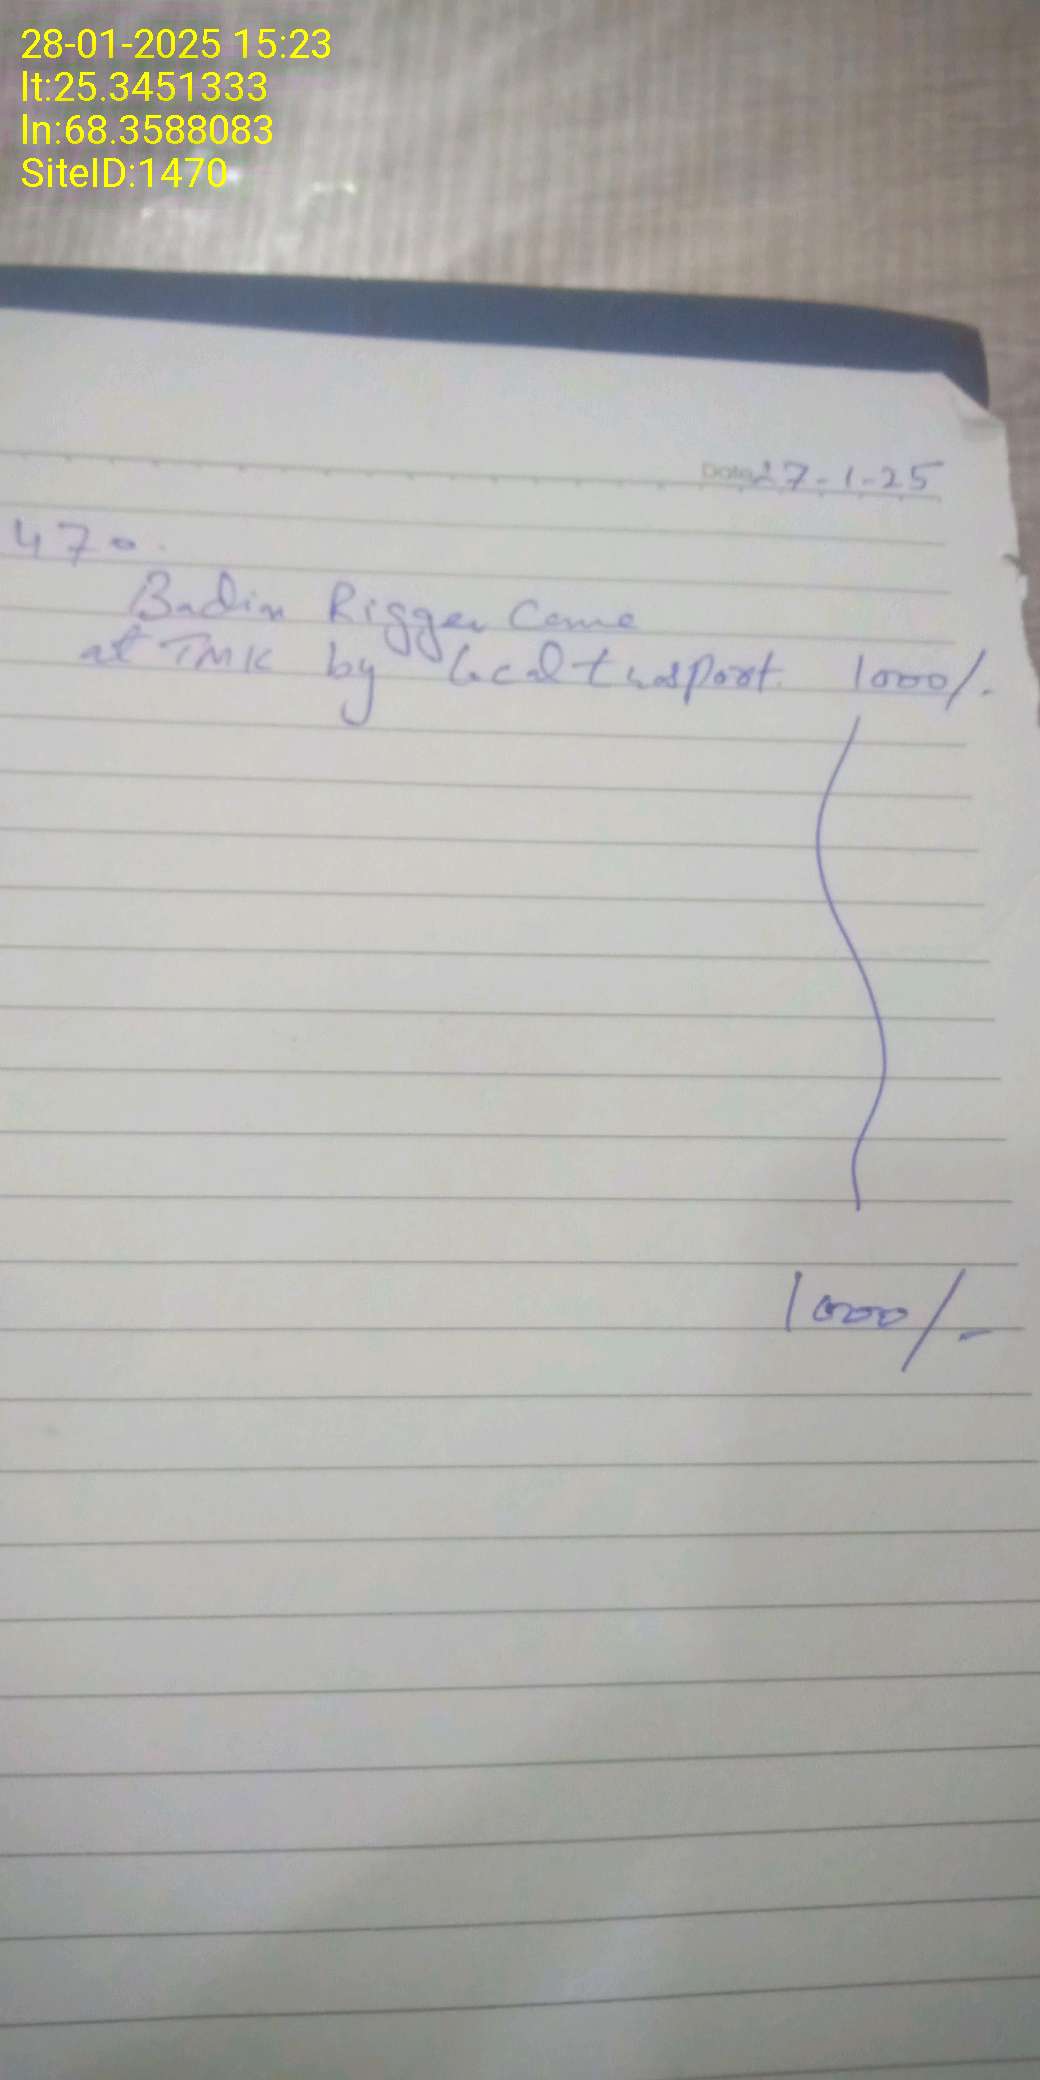 28-01-2025 15:23
lt:25.3451333
ln:68.3588083
SiteID:1470
Date 27-1-25
470.
Badin Rigger Came
at TMK by local trasport. 1000/-
1000/-